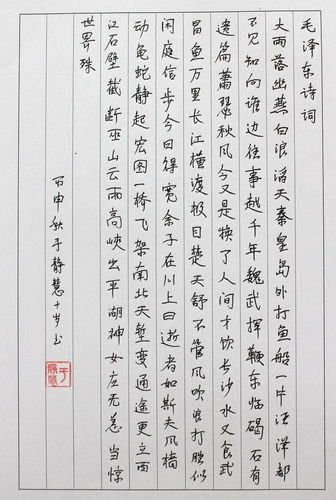 毛泽东诗词
大雨落幽燕白浪滔天秦皇岛外打鱼船一片汪洋都
不见知向谁边往事越千年魏武挥鞭东临碣石有
遗篇萧瑟秋风今又是换了人间才饮长沙水又食武
昌鱼万里长江横渡极目楚天舒不管风吹浪打胜似
闲庭信步今日得宽余子在川上曰逝者如斯夫风樯
动龟蛇静起宏图一桥飞架南北天堑变通途更立西
江石壁截断巫山云雨高峡出平湖神女应无恙当惊
世界殊
丙申秋于静慧十岁书